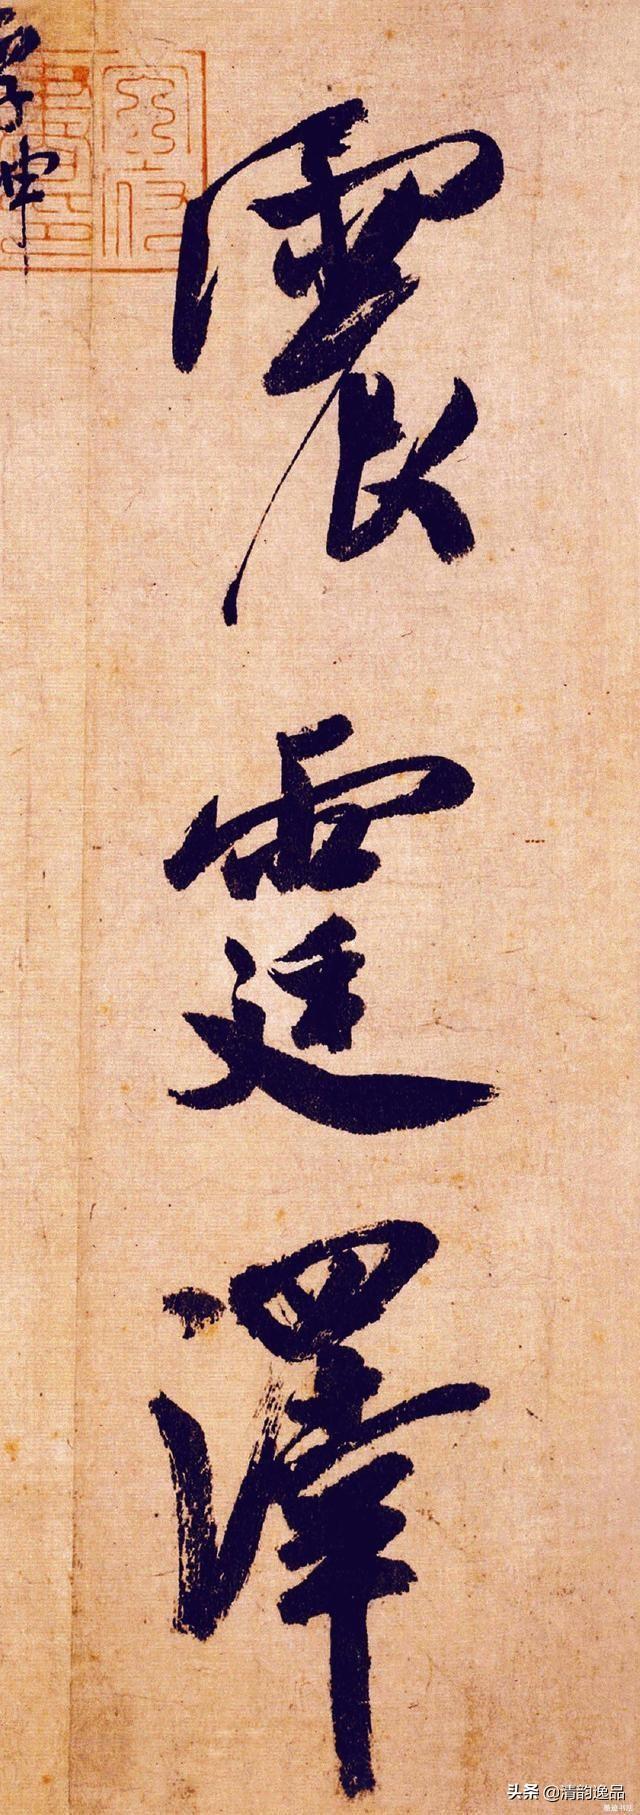 震霆澤
坤
头条 @清韵逸品